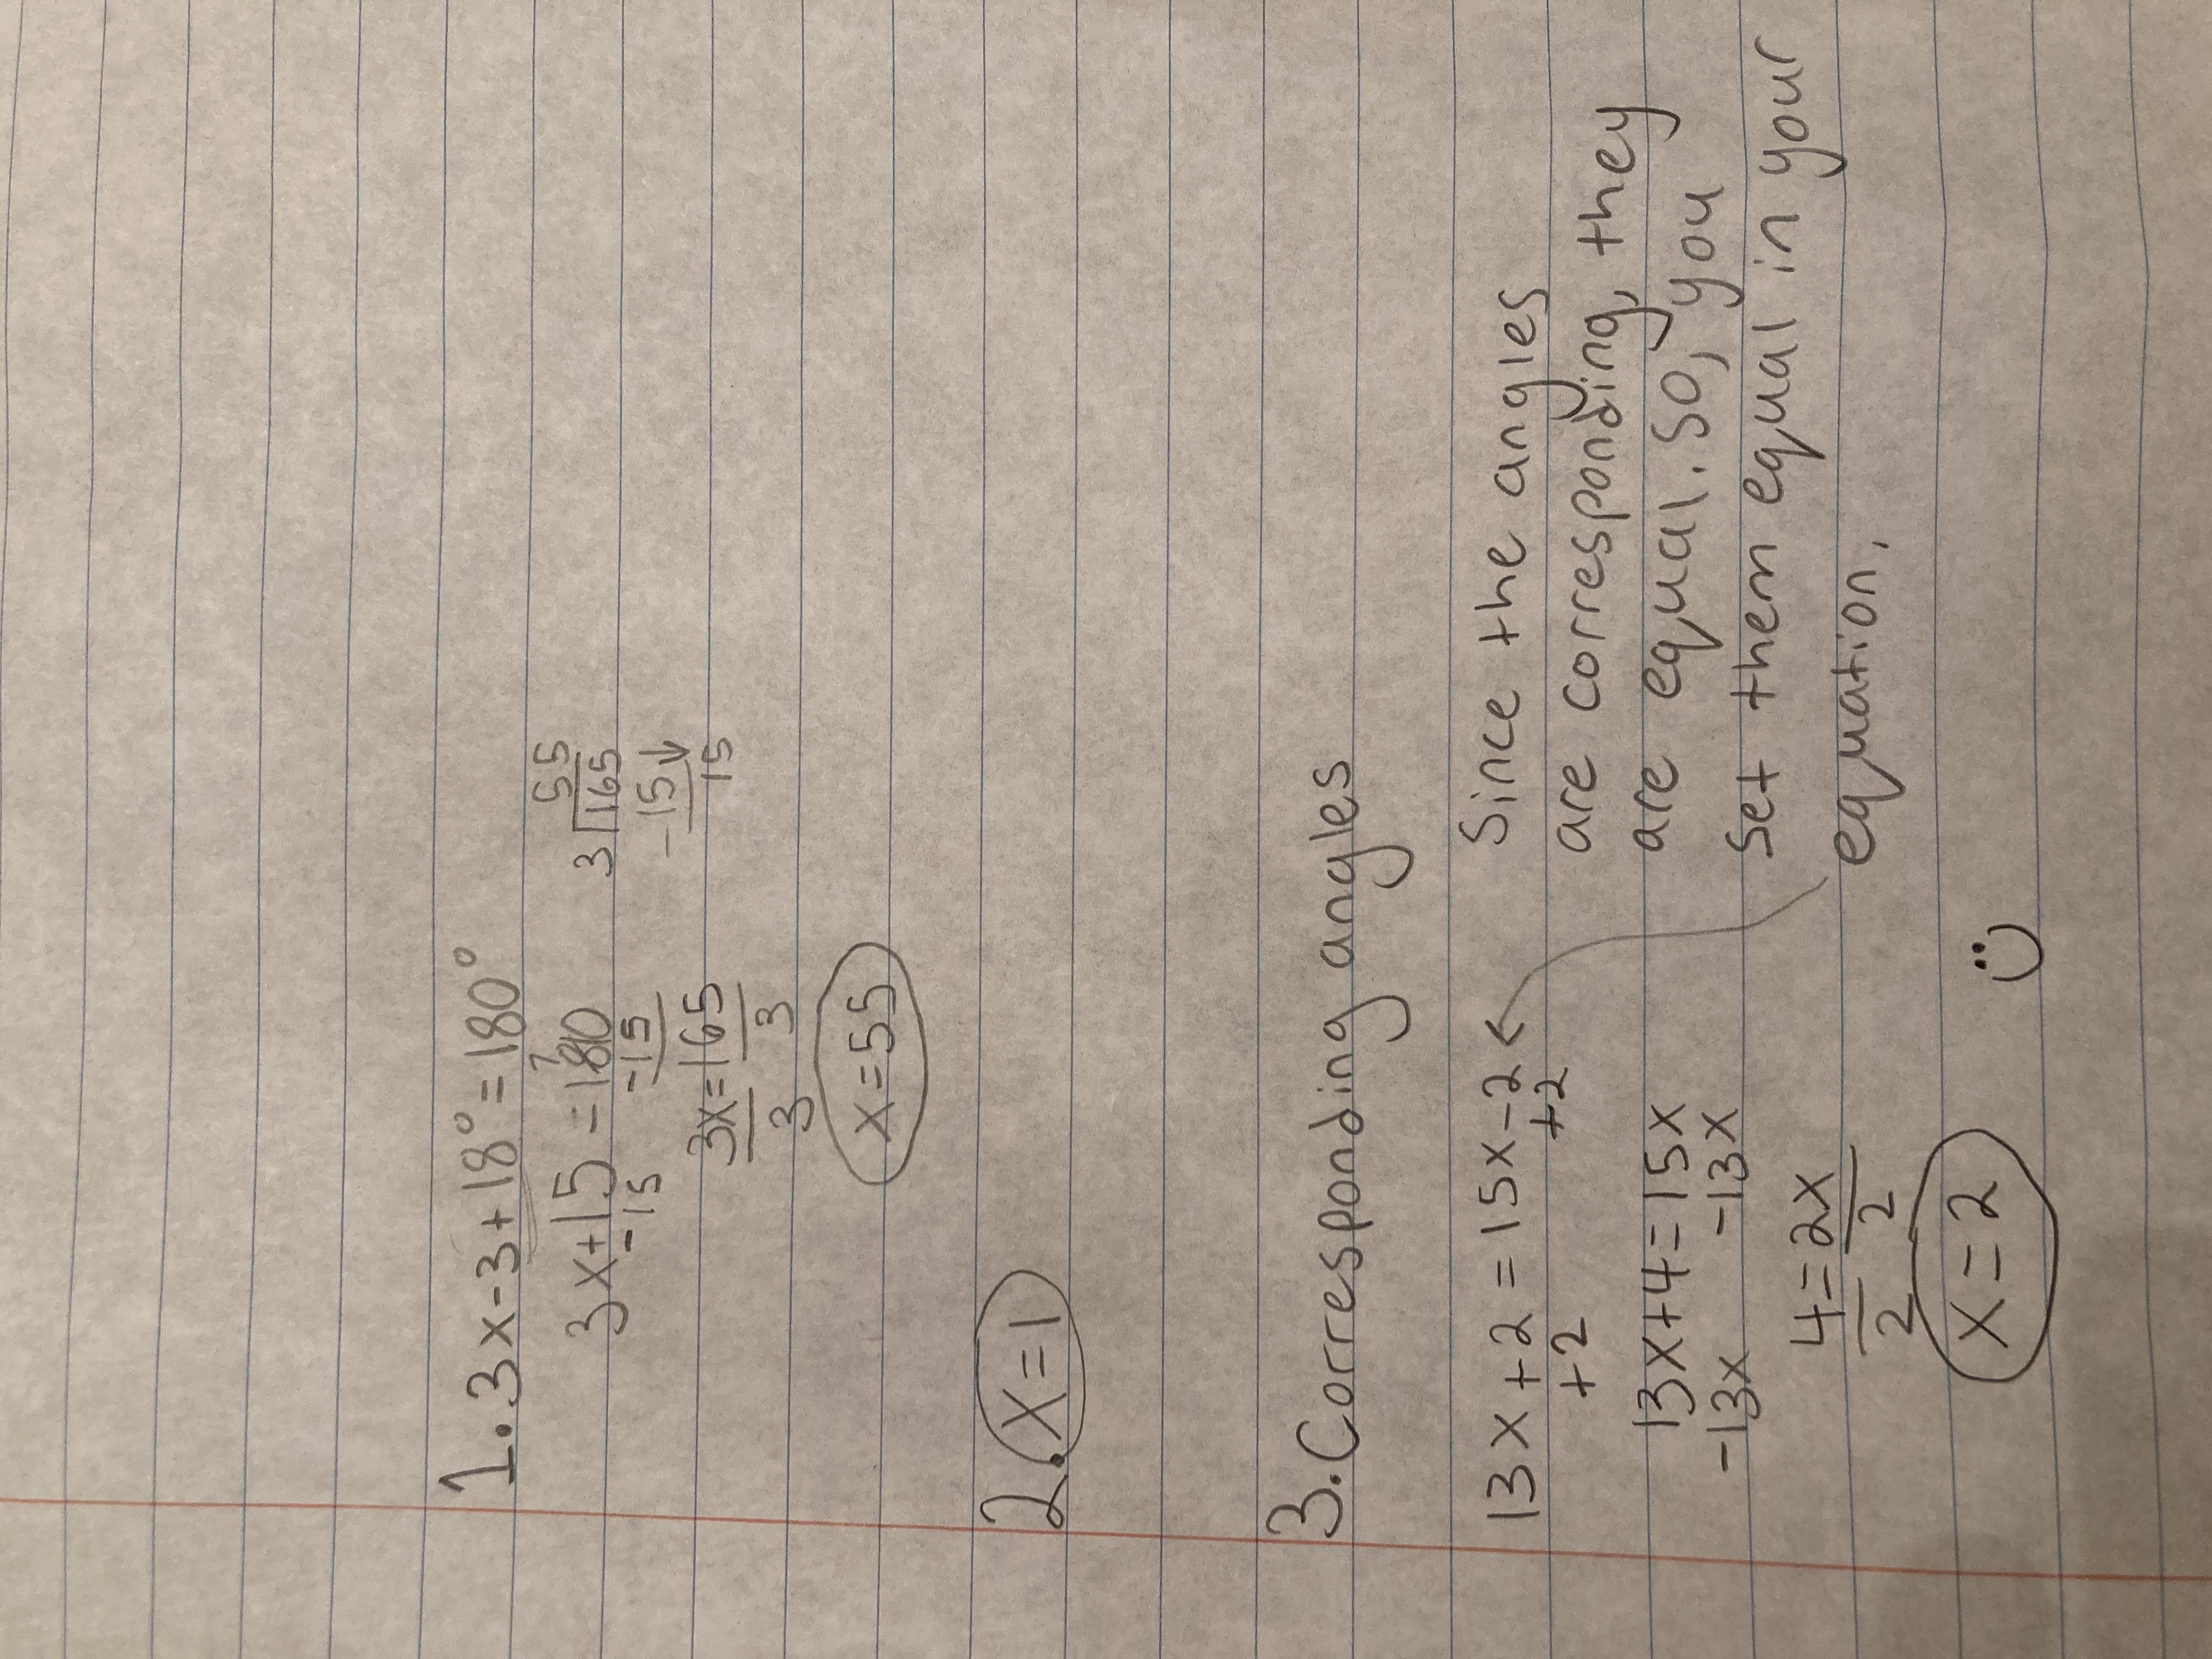 1. 3x-3+18°=180°
3x+15=180
-15 -15
3x=165
3 3
x=55
55
3 165
-15↓
15
2. x=1
3. Corresponding angles
13x+2=15x-2
+2 +2
13x+4=15x
-13x -13x
4=2x
2 2
x=2
Since the angles
are corresponding, they
are equal. So, you
set them equal in your
equation.